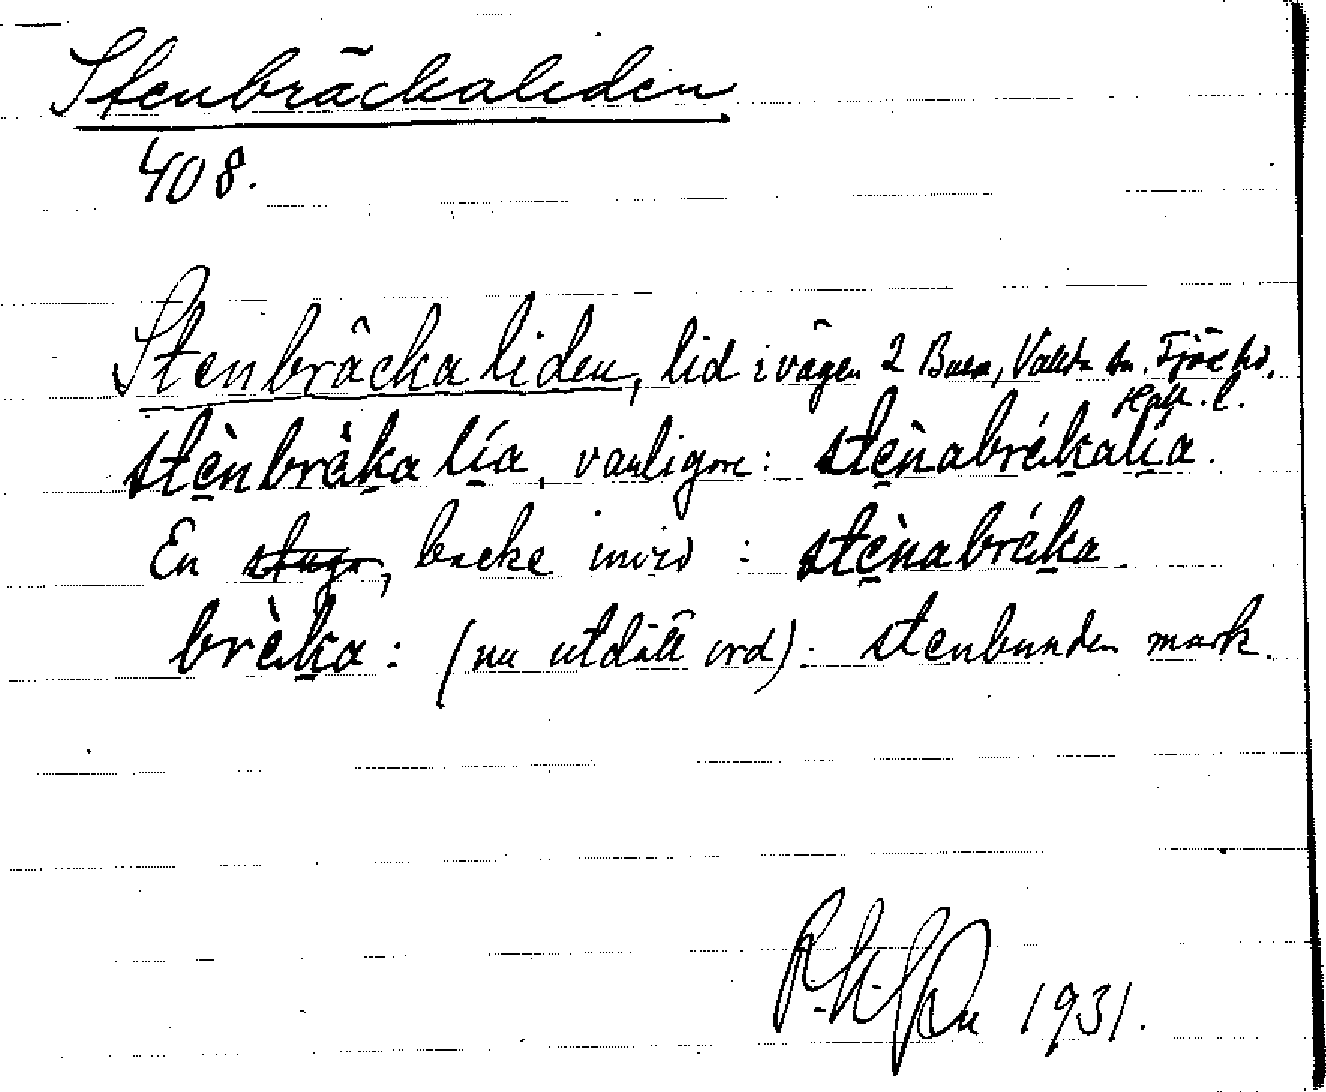 Stenbräckaliden
408.
Stenbräcka liden, lid i vägen 2 Buera, Vallda sn. Fjäre hd.
Hall. l.
stènbrèka lía, vanligare: stènabrékalía.
En stuga, backe invid: stènabréka
brèka: (nu utdött ord). stenbunden mark.
1931.